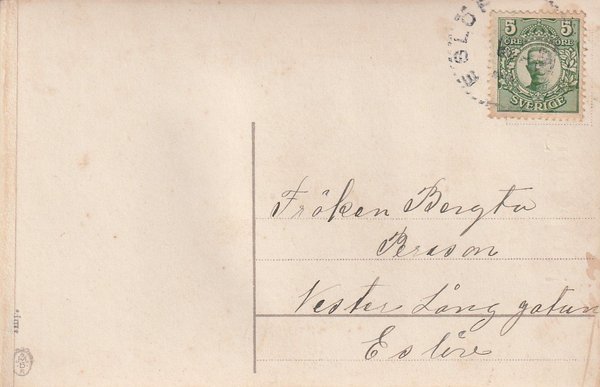 5 5
ÖRE ÖRE
SVERIGE
ESLÖF
Fröken Bergta
Person
Vester Lång gatan
Eslöv